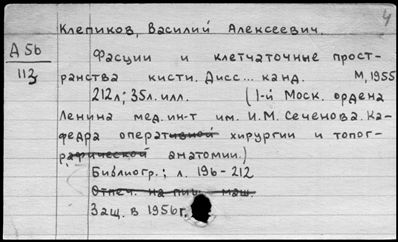 4
Клепиков, Василий Алексеевич.
Д 56
113
Фасции и клетчаточные прост-
ранства кисти. Дисс... канд. М, 1955
212л; 35л. илл. (1-й Моск. ордена
Ленина мед. ин-т им. И.М. Сеченова. Ка-
федра оперативной хирургии и топог-
рафической анатомии.)
Библиогр.; л. 196-212
Отпеч. на пиш. маш.
Защ. в 1956г.